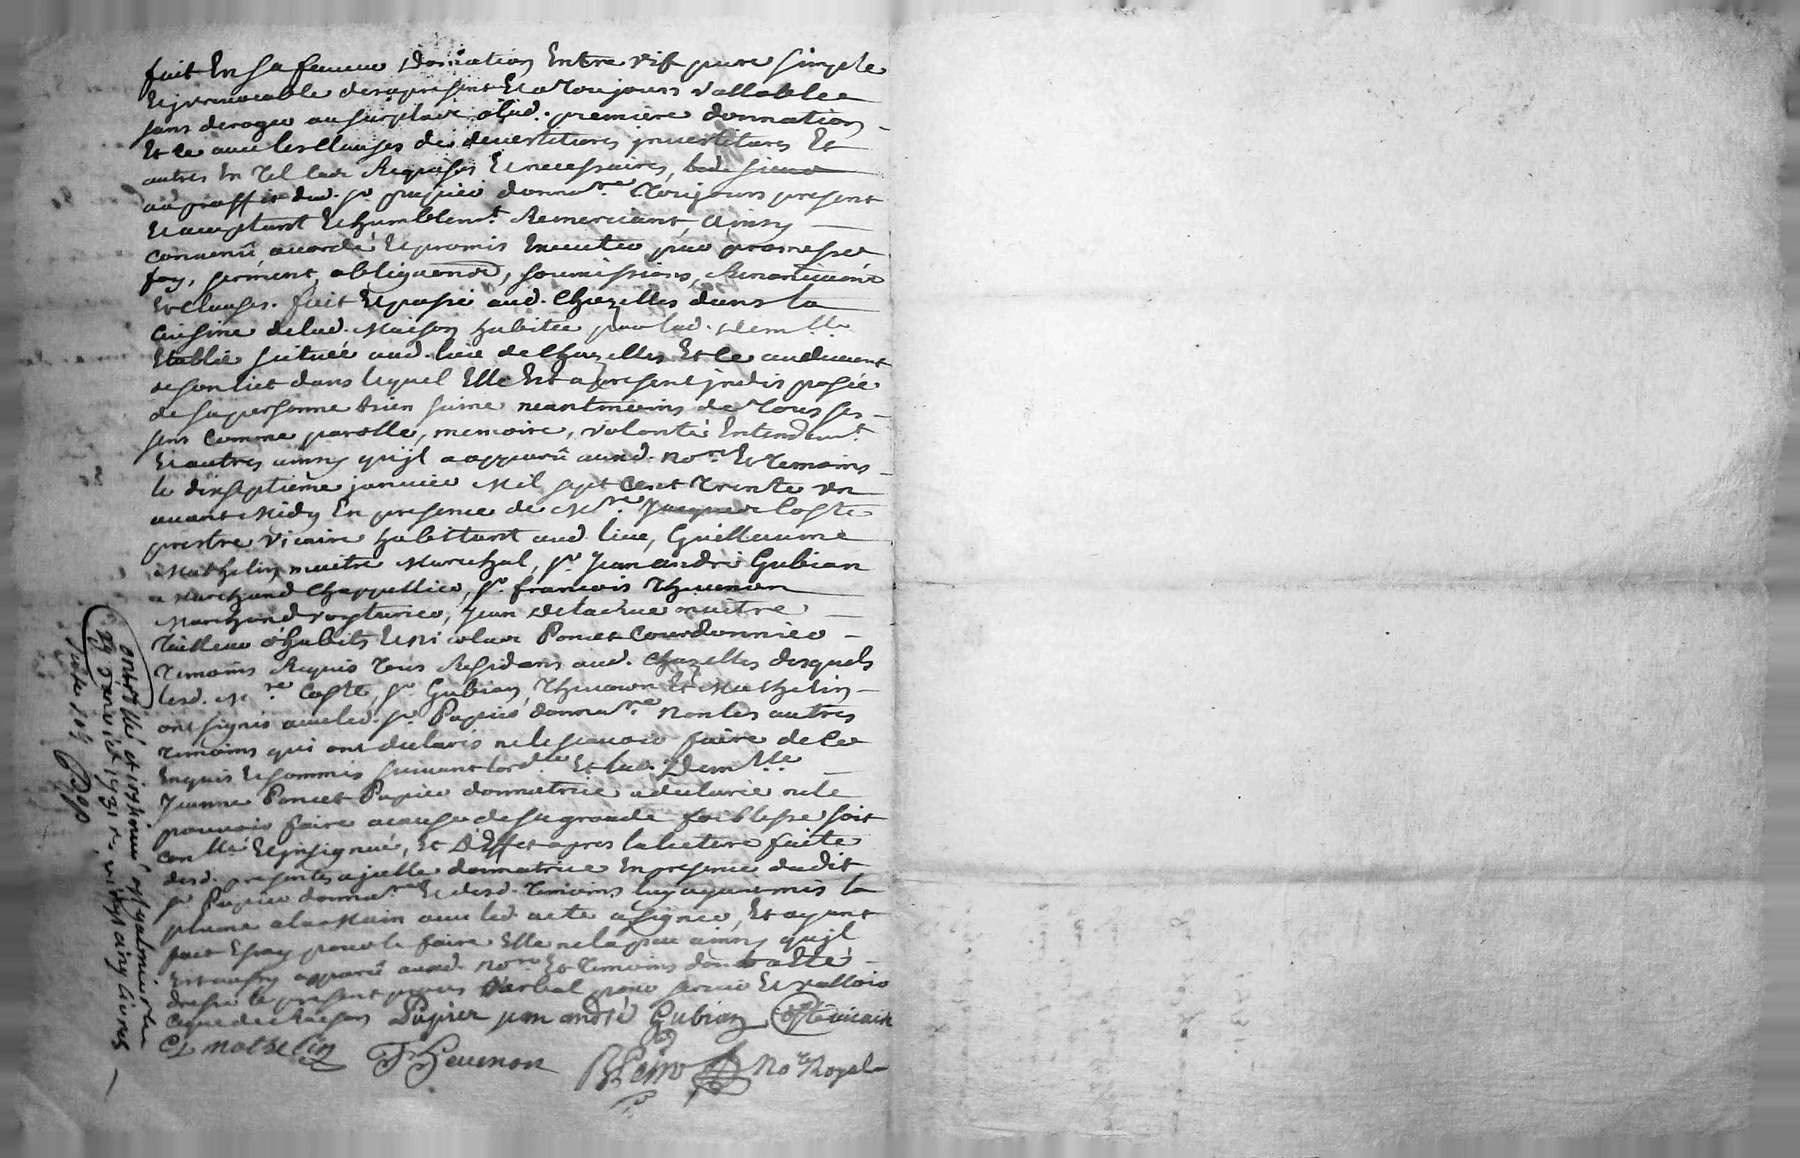 fait En sa faveur donnation Entre vif pure simple
Et irrevocable des apresent Et a Toujours vallablee
sans deroger au surplus a lad. premiere donnation
Et ce avec les Clauses de devestitures investitures Et
autres En Tel Cas Requises Et necessaires,
au proffit dud. sr. papier donnatre. Toujours present
Et acceptant Et humblemt. Remerciant, Ainsy
Convenu accordé Et promis Executer par promesse
foy, serment, obligations, soumissions, Renonciations
Et Clauses. fait Et passé aud. Chazelles dans la
Cuisine de lad. Maison habitée par lad. Demlle.
Etablie scituée aud. lieu de Chazelles Et Ce au devant
de son lict dans lequel Elle Est a present indisposée
de sa personne bien saine neantmoins de Tous ses
sens Comme parolle, memoire, volonté Entendemt.
Et autres ainsy qu'jl a apparû aud. Nore. Et Temoins
le dixseptième janvier Mil sept Cent Trente un
avant Midy En presence de Mre. Jacques Coste
prestre vicaire habittant aud. lieu, Guillaume
Mathelin maitre Marechal, sr. Jean andré Gubian
Marchand Chappellier, sr. francois Theunon
Marchand voyturier, Jean Delachue maitre
Tailleur d'habits Et Nicolas Poncet Courdonnier
Temoins Requis Tous Residans aud. Chazelles desquels
lesd. Mre. Coste, sr. Gubian, Theunon Et Mathelin
ont signés avec led. sr. Papier donnatre. Non les autres
Temoins qui ont declarés ne le scavoir faire de Ce
Enquis Et sommés suivant lordce. Et lad. Demlle.
Jeanne Poncet Papier donnatrice a declaré ne le
pouvoir faire a cause de sa grande foiblesse soit
conllé Et insignué, Et d'Effet apres la lecture faite
desd. presentes a jcelle donnatrice En presence dudit
sr. Papier donnatre Et desd. Temoins luy ayant mis la
plume a la Main avec led. acte a signer, Et ayant
fait Essay pour le faire Elle ne la pas ainsy qu'jl
Est aussy apparû aud. Nore. Et Temoins dont a Esté
dressé le present procés Verbal pour servir Et valloir
Ceque de Raison Papier jean andré Gubian Coste vicaire
G. mathelin F. Theunon No.re Royal
Controllé et insinué a St galmier le
janvier 1731 R. vingt cinq livres